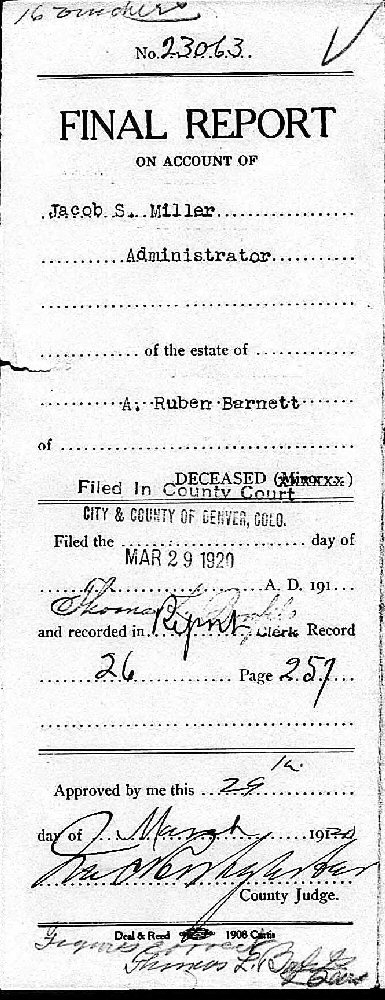 16 vouchers
No. 23063.
FINAL REPORT
ON ACCOUNT OF
Jacob S. Miller
Administrator
of the estate of
A. Ruben Barnett
of
DECEASED (Minor xx)
Filed In County Court
CITY & COUNTY OF DENVER, COLO.
Filed the day of
MAR 29 1920
A. D. 191
Thomas
and recorded in Report Clerk Record
26 Page 257
Approved by me this 29
day of March 1920
County Judge.
Deal & Reed 1908 Curtis
Figures correct
Thomas L.